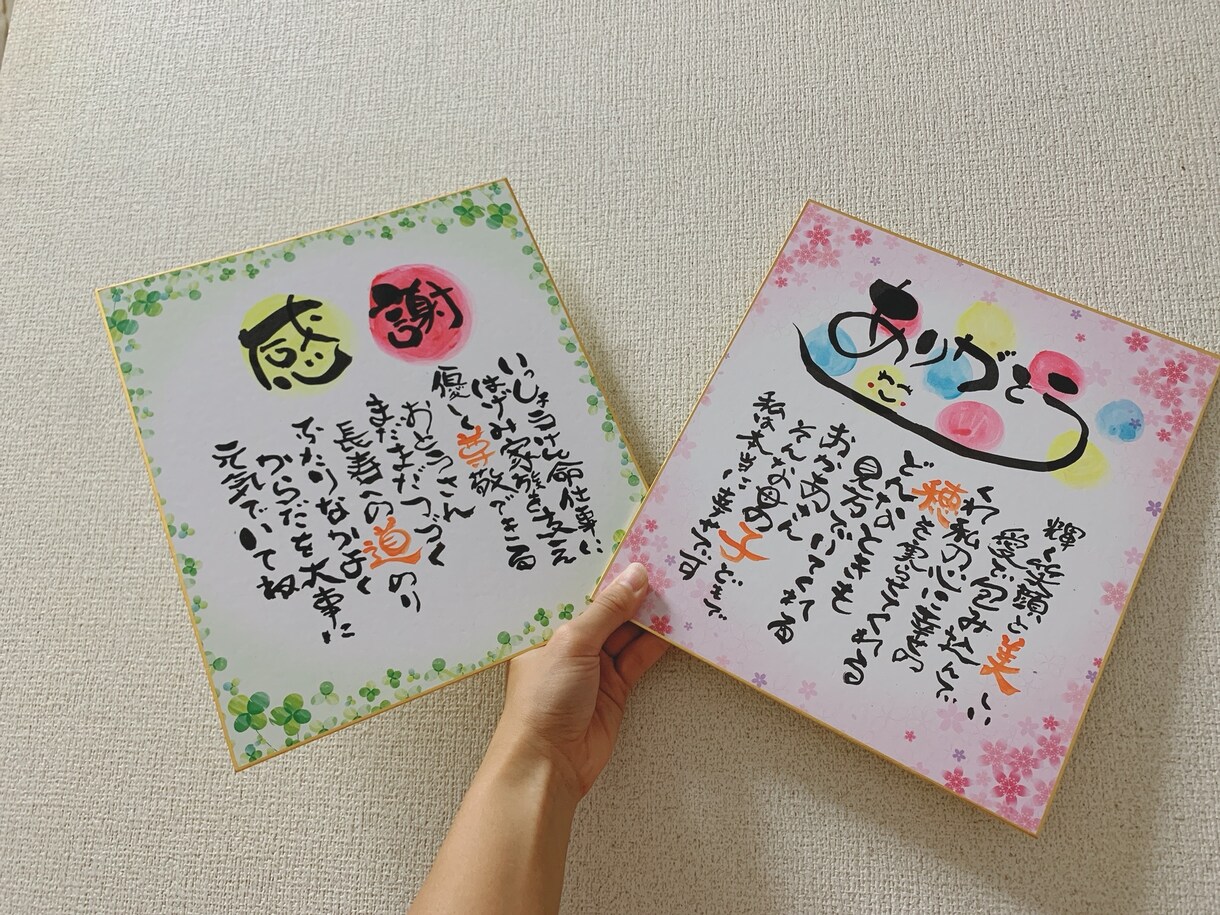 感謝
いっしょう けん命仕事に
はげみ家族を支え
優しく尊敬できる
おとうさん
まだまだつづく
長寿への道のり
ふたりなかよく
からだを大事に
元気でいてね
ありがとう
輝く笑顔と美しい
愛で包み込んで
くれ私の心に幸せの
穂を実らせてくれる
どんなときも
見方でいてくれる
おかあさん
そんな母の子どもで
私は本当に幸せです